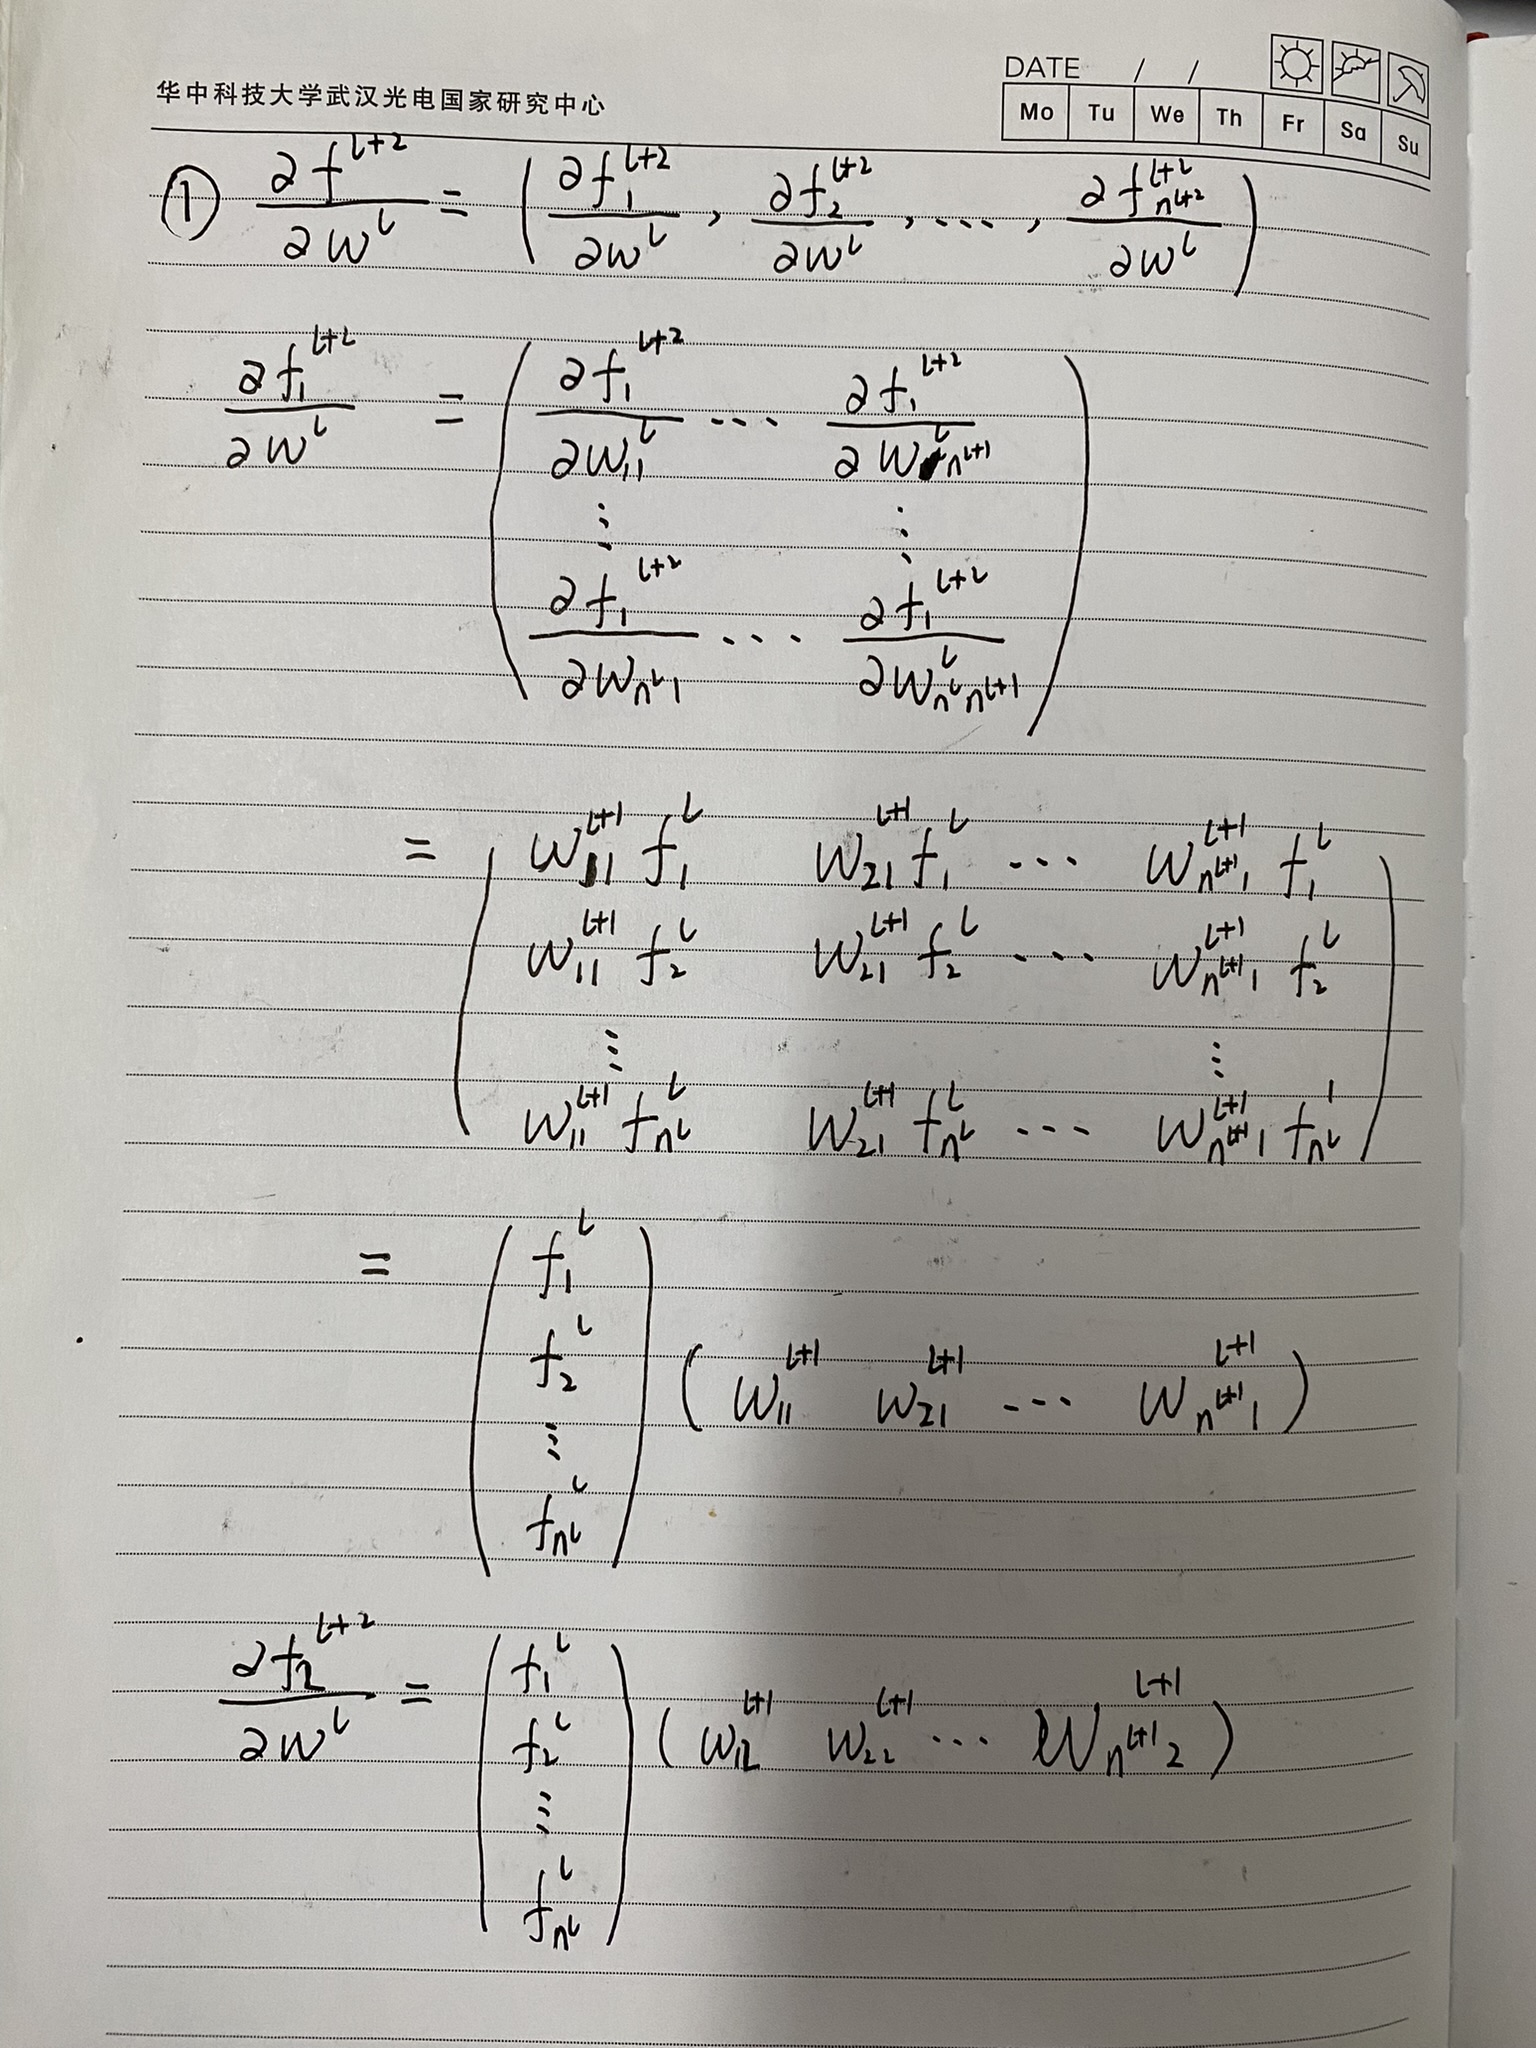 华中科技大学武汉光电国家研究中心
DATE / /
Mo Tu We Th Fr Sa Su
① ∂f^{l+2} / ∂w^l = ( ∂f_1^{l+2} / ∂w^l , ∂f_2^{l+2} / ∂w^l , ... , ∂f_{n^{l+2}}^{l+2} / ∂w^l )
∂f_1^{l+2} / ∂w^l = ( ∂f_1^{l+2} / ∂w_{11}^l ... ∂f_1^{l+2} / ∂w_{1n^{l+1}}^l
⋮ ⋮
∂f_1^{l+2} / ∂w_{n^l 1} ... ∂f_1^{l+2} / ∂w_{n^l n^{l+1}}^l )
= ( w_{11}^{l+1} f_1^l w_{21}^{l+1} f_1^l ... w_{n^{l+1} 1}^{l+1} f_1^l
w_{11}^{l+1} f_2^l w_{21}^{l+1} f_2^l ... w_{n^{l+1} 1}^{l+1} f_2^l
⋮ ⋮
w_{11}^{l+1} f_{n^l}^l w_{21}^{l+1} f_{n^l}^l ... w_{n^{l+1} 1}^{l+1} f_{n^l}^l )
= ( f_1^l
f_2^l
⋮
f_{n^l}^l ) ( w_{11}^{l+1} w_{21}^{l+1} ... w_{n^{l+1} 1}^{l+1} )
∂f_2^{l+2} / ∂w^l = ( f_1^l
f_2^l
⋮
f_{n^l}^l ) ( w_{12}^{l+1} w_{22}^{l+1} ... w_{n^{l+1} 2}^{l+1} )